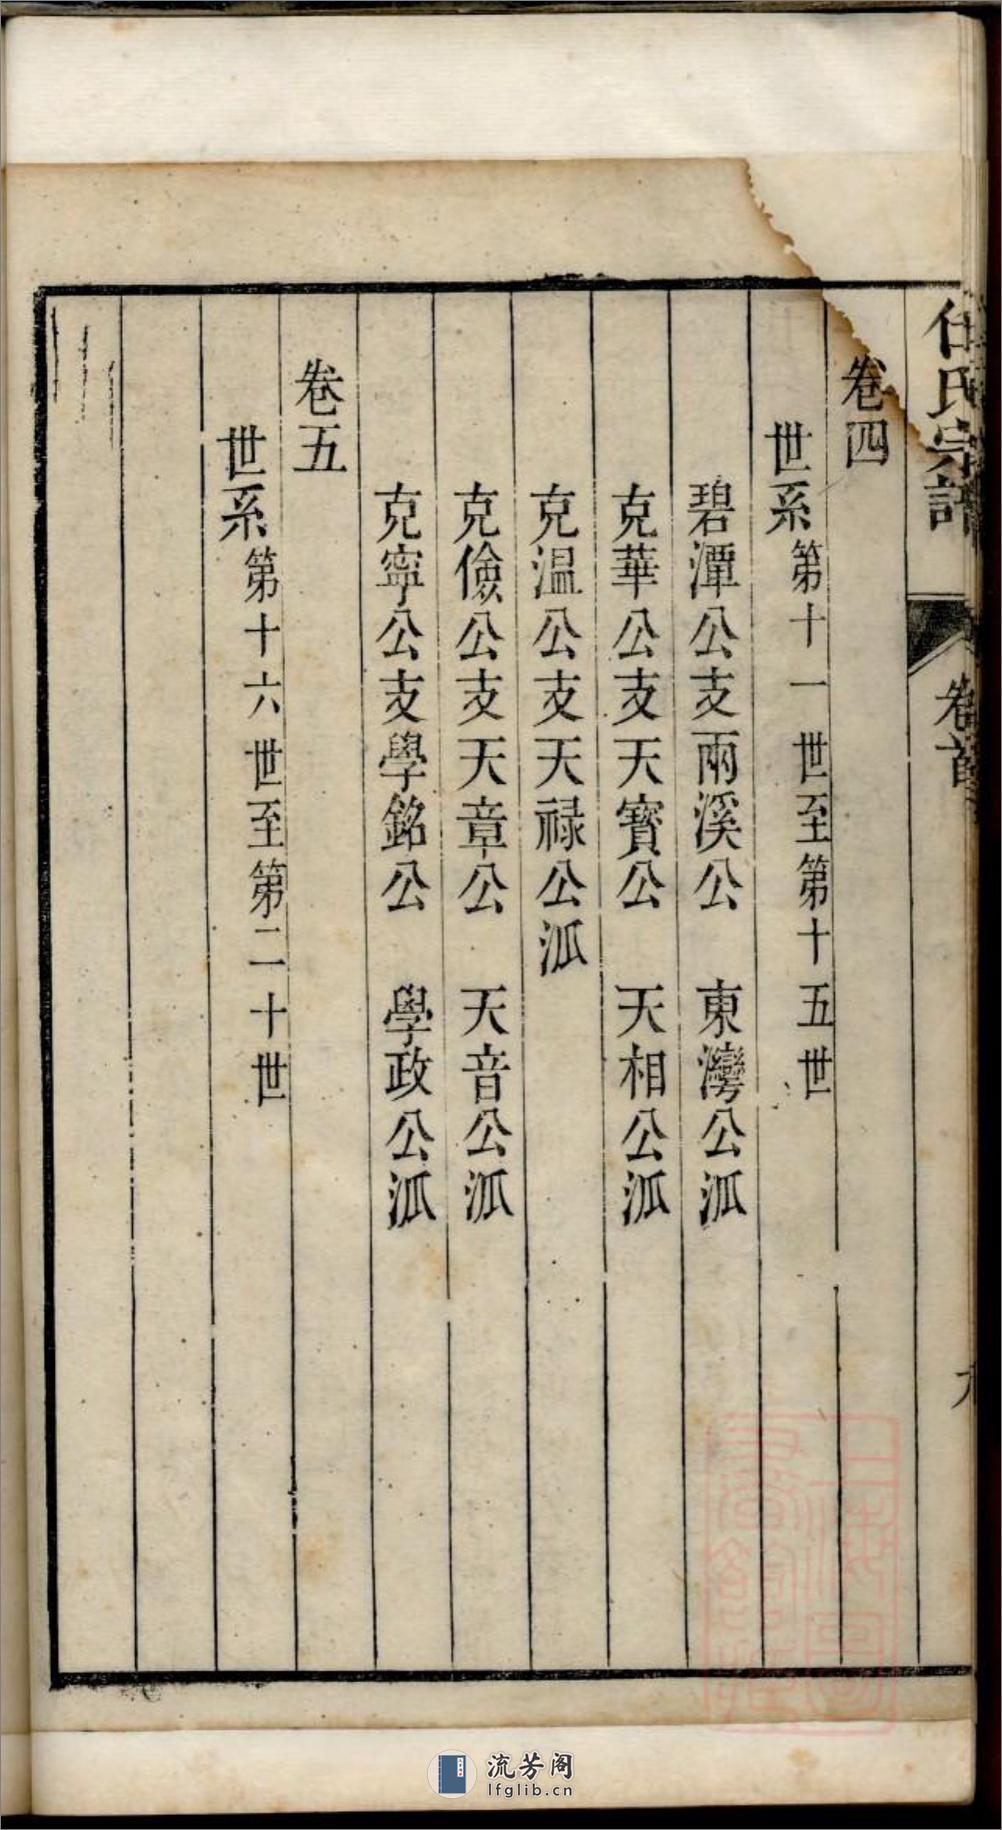 任氏宗譜
卷首
卷四
世系第十一世至第十五世
碧潭公支兩溪公　東灣公派
克華公支天寶公　天相公派
克温公支天禄公派
克儉公支天章公　天音公派
克寧公支學銘公　學政公派
卷五
世系第十六世至第二十世
流芳阁
lfglib.cn